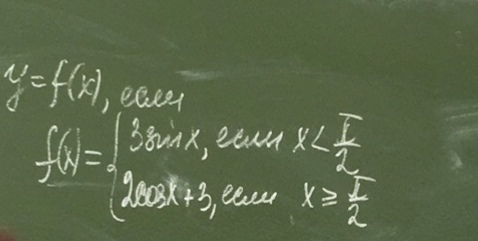 y = f(x), если
f(x) = { 3sinx, если x < π/2
2cosx + 3, если x ≥ π/2